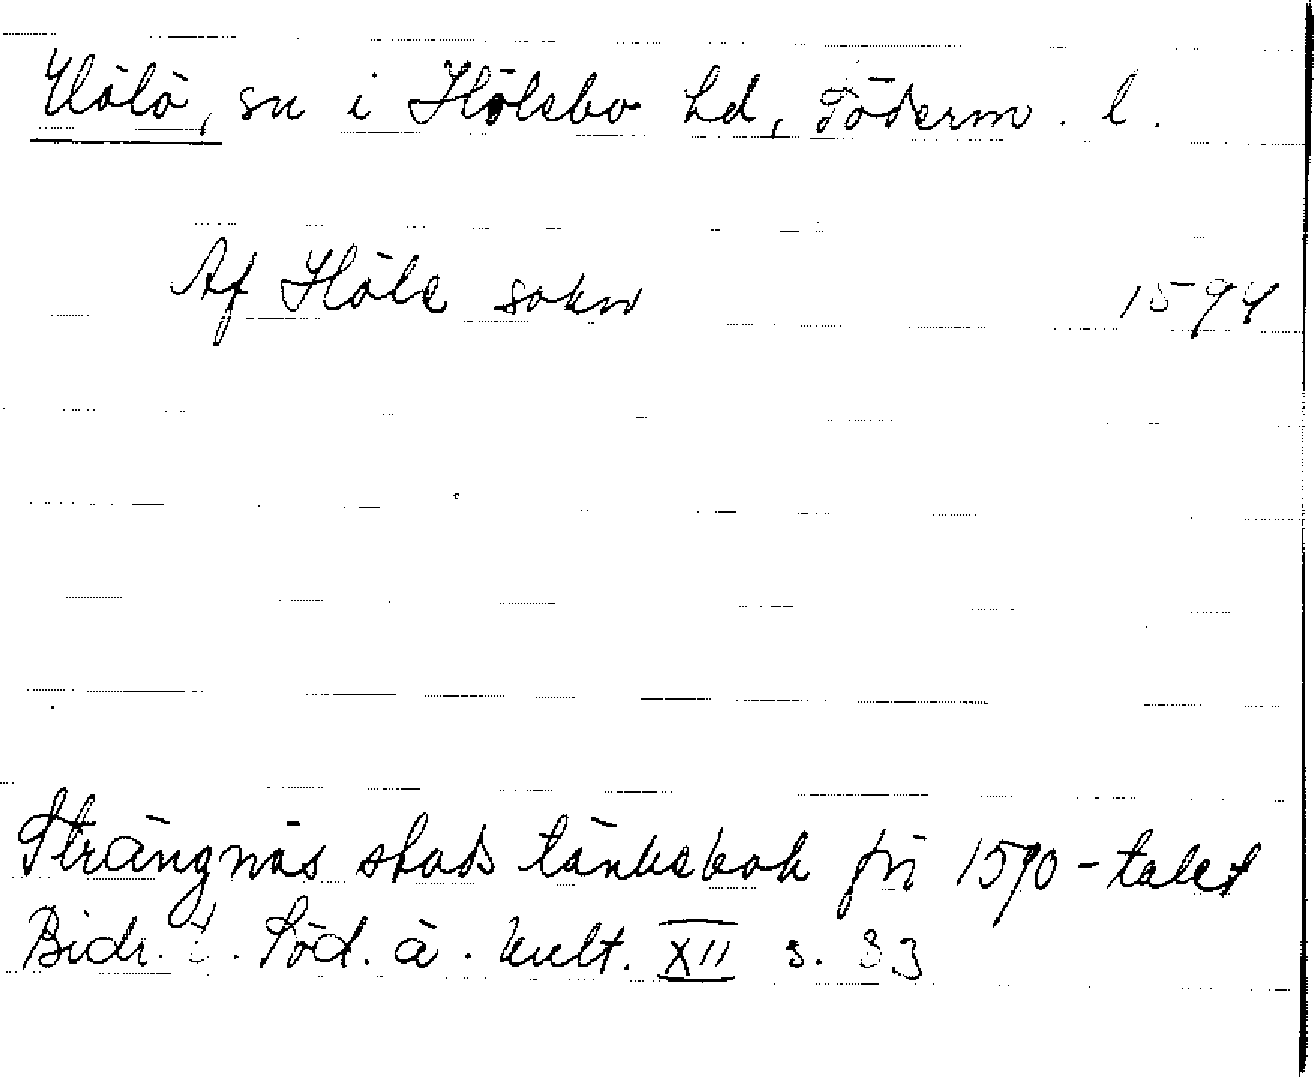 Hölö, sn i Hölebo hd, Söderm. l.
Af Höle sokn 1594
Strängnäs stads tänkebok fri 1590-talet
Bidr. t. Söd. ä. kult. XII s. 33